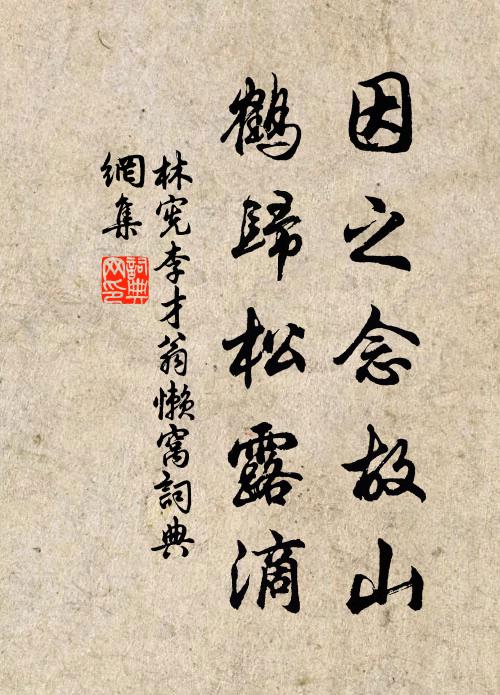 因之念故山
鶴歸松露滴
林宪李才翁懒窝詞典
網集
詞典
网印